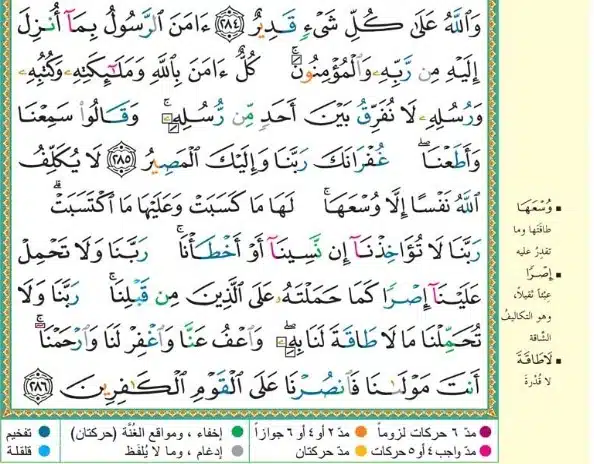 وَاللَّهُ عَلَىٰ كُلِّ شَيْءٍ قَدِيرٌ ﴿٢٨٤﴾ ءَامَنَ الرَّسُولُ بِمَآ أُنزِلَ
إِلَيْهِ مِن رَّبِّهِۦ وَالْمُؤْمِنُونَ ۚ كُلٌّ ءَامَنَ بِاللَّهِ وَمَلَٰٓئِكَتِهِۦ وَكُتُبِهِۦ
وَرُسُلِهِۦ لَا نُفَرِّقُ بَيْنَ أَحَدٍ مِّن رُّسُلِهِۦ ۚ وَقَالُوا سَمِعْنَا
وَأَطَعْنَا ۖ غُفْرَانَكَ رَبَّنَا وَإِلَيْكَ الْمَصِيرُ ﴿٢٨٥﴾ لَا يُكَلِّفُ
اللَّهُ نَفْسًا إِلَّا وُسْعَهَا ۚ لَهَا مَا كَسَبَتْ وَعَلَيْهَا مَا اكْتَسَبَتْ ۗ
رَبَّنَا لَا تُؤَاخِذْنَآ إِن نَّسِينَآ أَوْ أَخْطَأْنَا ۚ رَبَّنَا وَلَا تَحْمِلْ
عَلَيْنَآ إِصْرًا كَمَا حَمَلْتَهُۥ عَلَى الَّذِينَ مِن قَبْلِنَا ۚ رَبَّنَا وَلَا
تُحَمِّلْنَا مَا لَا طَاقَةَ لَنَا بِهِۦ ۖ وَاعْفُ عَنَّا وَاغْفِرْ لَنَا وَارْحَمْنَا ۚ
أَنتَ مَوْلَىٰنَا فَانصُرْنَا عَلَى الْقَوْمِ الْكَٰفِرِينَ ﴿٢٨٦﴾
▪ وُسْعَهَا
طاقتَها وما
تقدِرُ عليه
▪ إِصْرًا
عِبْئاً ثقيلاً،
وهو التكاليفُ
الشَّاقة
▪ لَا طَاقَةَ
لا قُدْرةَ
مدّ ٦ حركات لزوماً ● مدّ ٢ أو ٤ أو ٦ جوازاً ● إخفاء، ومواقع الغُنَّة (حركتان) ● تفخيم
مدّ واجب ٤ أو ٥ حركات ● مدّ حركتان ● إدغام، وما لا يُلفَظ ● قلقلة